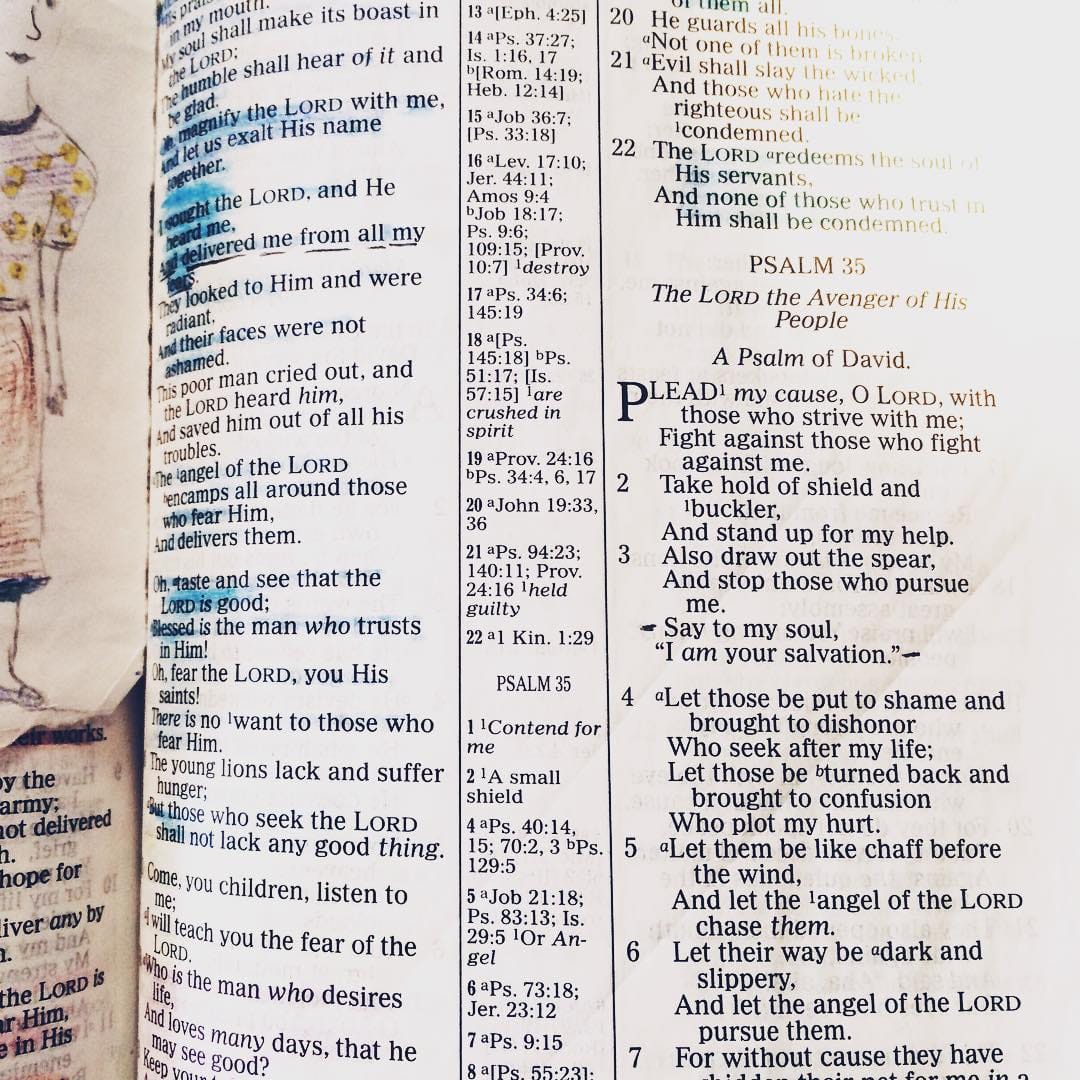 eir works.
by the
army;
not delivered
h.
hope for
liver any by
the LORD is
ar Him,
e in His
in my mouth.
My soul shall make its boast in
the LORD;
The humble shall hear of it and
be glad.
Oh, magnify the LORD with me,
And let us exalt His name
together.
I sought the LORD, and He
heard me,
And delivered me from all my
fears.
They looked to Him and were
radiant,
And their faces were not
ashamed.
This poor man cried out, and
the LORD heard him,
And saved him out of all his
troubles.
The 1angel of the LORD
bencamps all around those
who fear Him,
And delivers them.
Oh, ataste and see that the
LORD is good;
Blessed is the man who trusts
in Him!
Oh, fear the LORD, you His
saints!
There is no 1want to those who
fear Him.
The young lions lack and suffer
hunger;
But those who seek the LORD
shall not lack any good thing.
Come, you children, listen to
me;
I will teach you the fear of the
LORD.
Who is the man who desires
life,
And loves many days, that he
may see good?
Keep your
13 a[Eph. 4:25]
14 aPs. 37:27;
Is. 1:16, 17
b[Rom. 14:19;
Heb. 12:14]
15 aJob 36:7;
[Ps. 33:18]
16 aLev. 17:10;
Jer. 44:11;
Amos 9:4
bJob 18:17;
Ps. 9:6;
109:15; [Prov.
10:7] 1destroy
17 aPs. 34:6;
145:19
18 a[Ps.
145:18] bPs.
51:17; [Is.
57:15] 1are
crushed in
spirit
19 aProv. 24:16
bPs. 34:4, 6, 17
20 aJohn 19:33,
36
21 aPs. 94:23;
140:11; Prov.
24:16 1held
guilty
22 a1 Kin. 1:29
PSALM 35
1 1Contend for
me
2 1A small
shield
4 aPs. 40:14,
15; 70:2, 3 bPs.
129:5
5 aJob 21:18;
Ps. 83:13; Is.
29:5 1Or An-
gel
6 aPs. 73:18;
Jer. 23:12
7 aPs. 9:15
8 a[Ps. 55:23];
of them all.
20 He guards all his bones;
aNot one of them is broken
21 aEvil shall slay the wicked,
And those who hate the
righteous shall be
1condemned.
22 The LORD aredeems the soul of
His servants,
And none of those who trust in
Him shall be condemned.
PSALM 35
The LORD the Avenger of His
People
A Psalm of David.
PLEAD1 my cause, O LORD, with
those who strive with me;
Fight against those who fight
against me.
2 Take hold of shield and
1buckler,
And stand up for my help.
3 Also draw out the spear,
And stop those who pursue
me.
Say to my soul,
“I am your salvation.”
4 aLet those be put to shame and
brought to dishonor
Who seek after my life;
Let those be bturned back and
brought to confusion
Who plot my hurt.
5 aLet them be like chaff before
the wind,
And let the 1angel of the LORD
chase them.
6 Let their way be adark and
slippery,
And let the angel of the LORD
pursue them.
7 For without cause they have